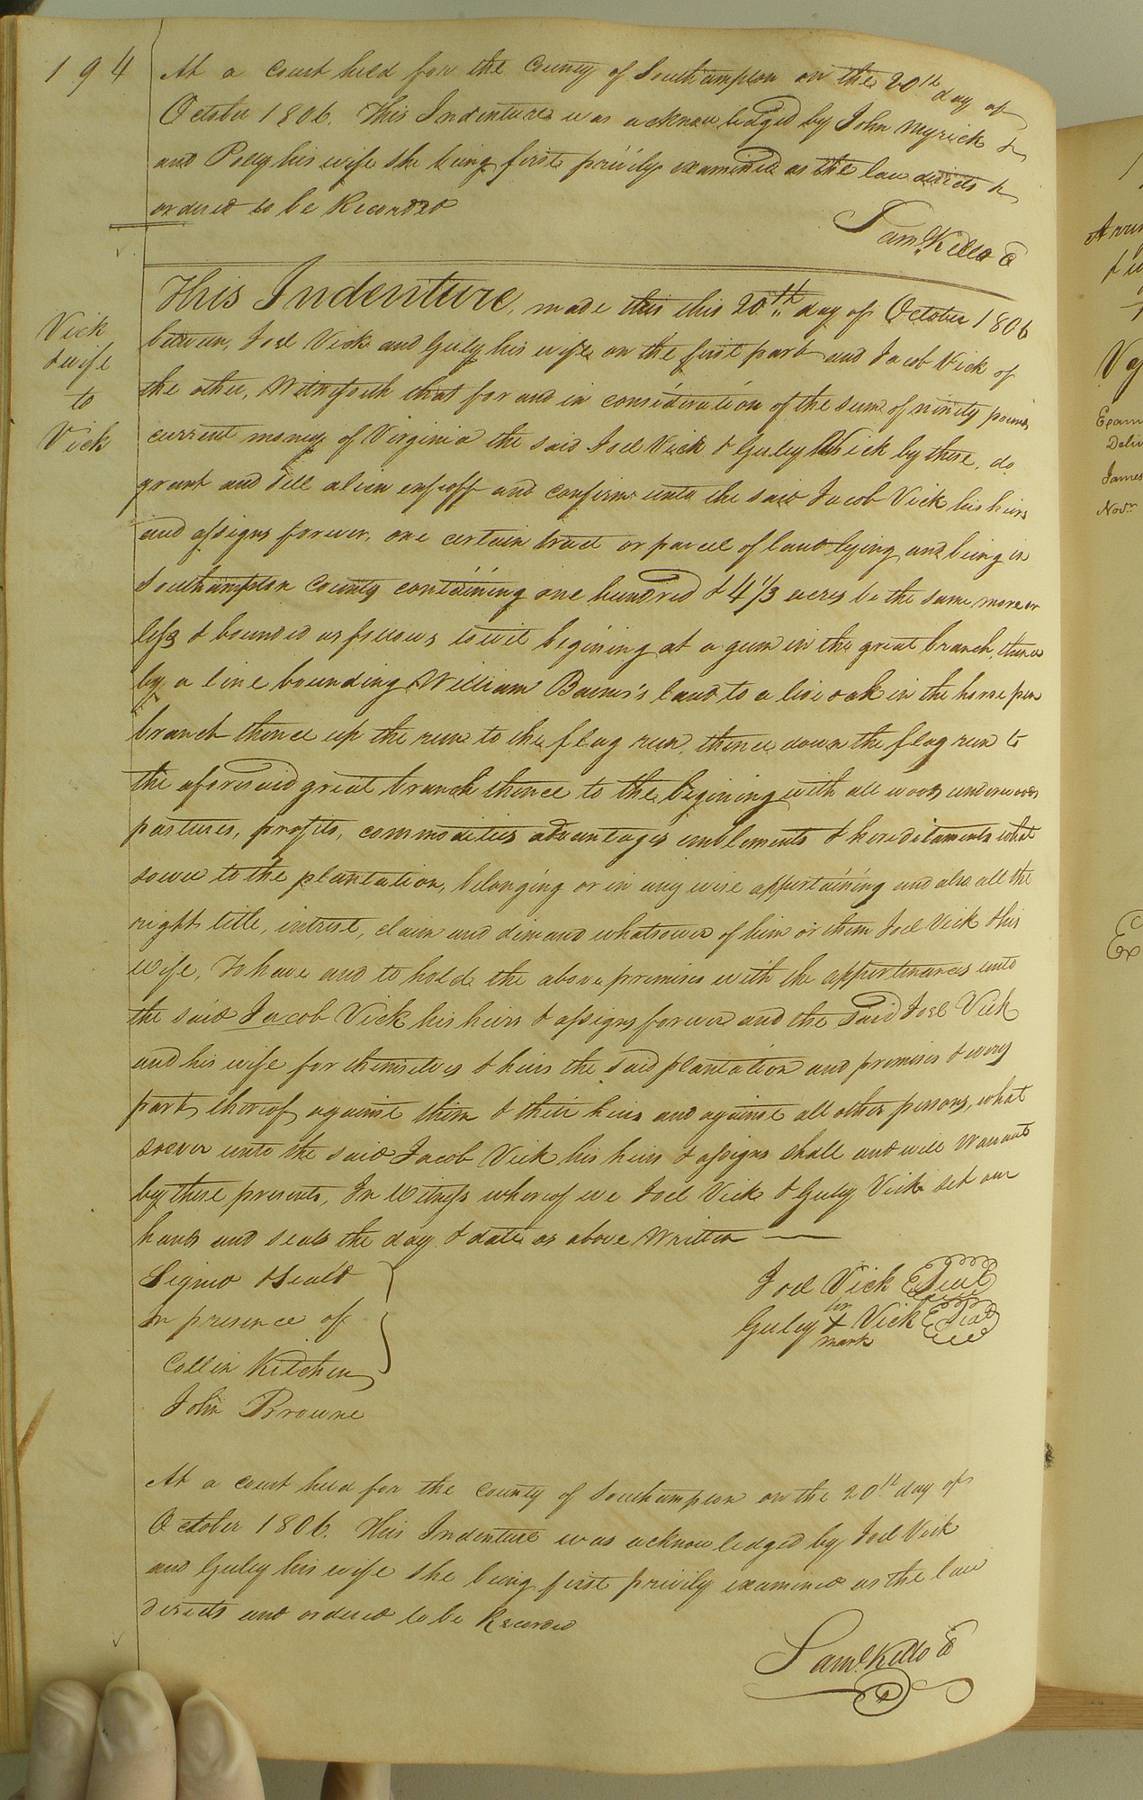 194
At a court held for the County of Southampton on the 20th day of
October 1806. This Indenture was acknowledged by John Myrick &
and Polly his wife she being first privily examined as the law directs &
ordered to be Recorded
Saml. Kello C
Vick
& wife
to
Vick
This Indenture, made this this 20th day of October 1806
between, Joel Vick and Guley his wife on the first part and Jacob Vick of
the other, Witnesseth that for and in consideration of the sum of ninety pounds
current money of Virginia the said Joel Vick & Guley Vick by these, do
grant and sell alien enfeoff and confirm unto the said Jacob Vick his heirs
and assigns forever, one certain tract or parcel of land lying and being in
Southampton County containing one hundred & 4 1/3 acres be the same more or
less & bounded as follows towit begining at a gum in the great branch, thence
by a line bounding William Barns's land to a live oak in the horse pen
branch thence up the run to the flag run, thence down the flag run to
the aforesaid great branch thence to the begining with all woods underwoods
pastures, profits, commodities advantages emblements & hereditaments what
soever to the plantation, belonging or in any wise appertaining and also all the
right title, intrest, claim and demand whatsoever of him or them Joel Vick & his
wife, To have and to hold the above premises with the appurtinances unto
the said Jacob Vick his heirs & assigns forever and the said Joel Vick
and his wife for themselves & heirs the said plantation and premises & every
part thereof against them & their heirs and against all other persons, what
soever unto the said Jacob Vick his heirs & assigns shall and will warrant
by these presents, In Witness whereof we Joel Vick & Guley Vick set our
hands and seals the day & date as above written
Signed & Seald
In presence of
Collin Kitchen
John Browne
Joel Vick Seal
her
Guley + Vick Seal
mark
At a court held for the county of Southampton on the 20th day of
October 1806. This Indenture was acknowledged by Joel Vick
and Guley his wife she being first privily examined as the law
directs and ordered to be Recorded
Saml. Kello C